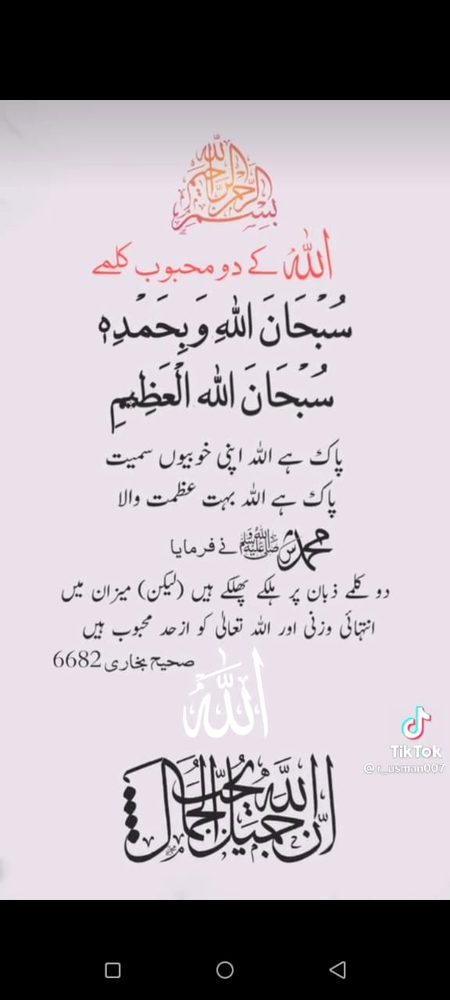 بسم الله الرحمن الرحيم
اللہ کے دو محبوب کلمے
سُبْحَانَ اللهِ وَبِحَمْدِهٖ
سُبْحَانَ الله الْعَظِيمِ
پاک ہے اللہ اپنی خوبیوں سمیت
پاک ہے اللہ بہت عظمت والا
محمد ﷺ نے فرمایا
دو کلمے ذبان پر ہلکے پھلکے ہیں (لیکن) میزان میں
انتہائی وزنی اور اللہ تعالیٰ کو ازحد محبوب ہیں
صحیح بخاری 6682
الله
TikTok
@r_usman007
ان الله جميل يحب الجمال